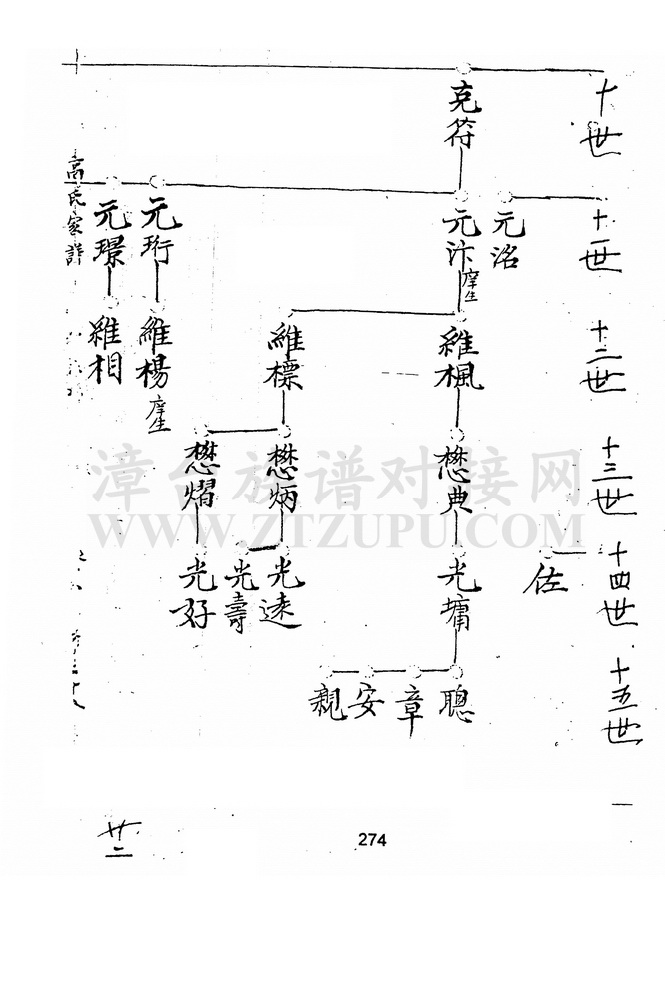 十世
克符
十一世
元洺
元汴庠生
元珩
元璟
高氏家譜
十二世
維楓
維標
維楊庠生
維相
十三世
懋典
懋炳
懋熠
十四世
佐
光墉
光遠
光壽
光好
十五世
聰
章
安
親
漳台族谱对接网
WWW.ZTZUPU.COM
廿二
274